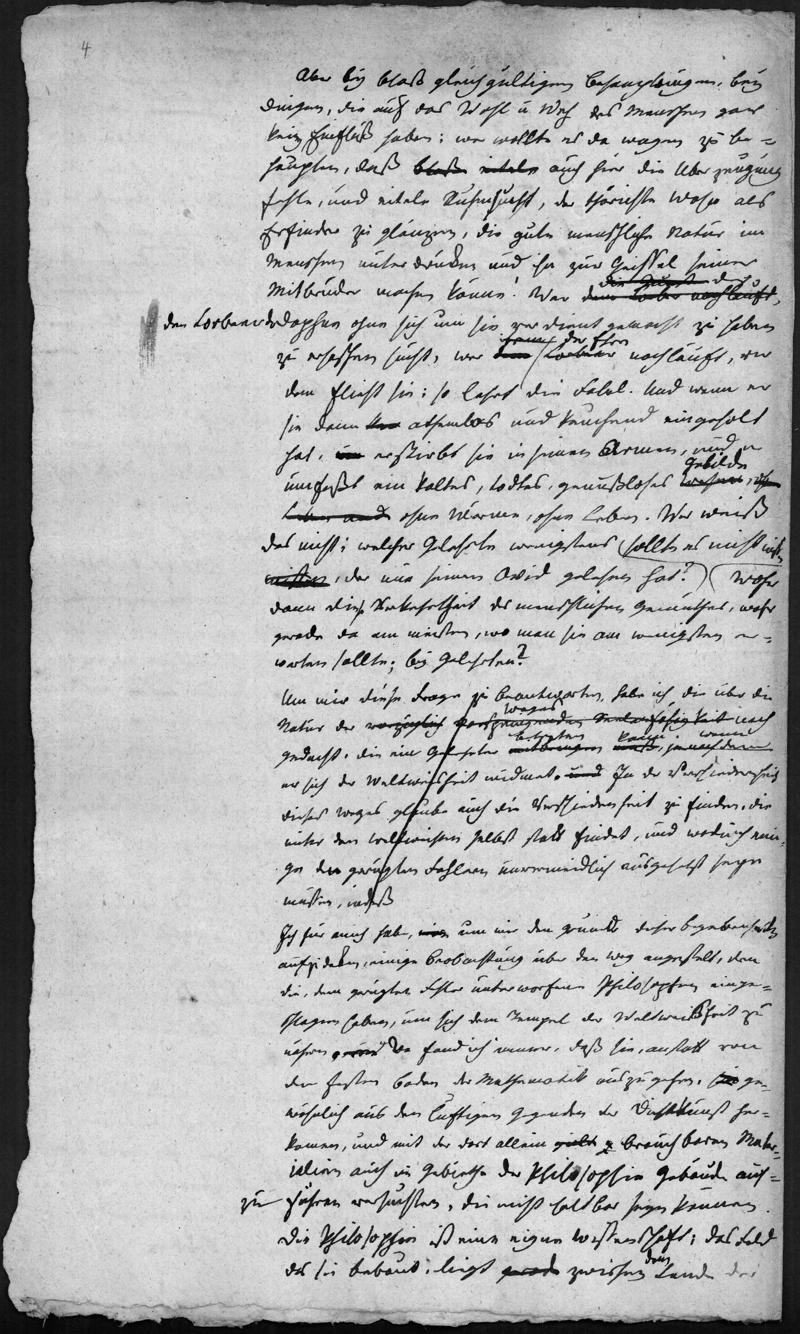 4
Aber bey bloß gleichgültigen Behauptungen, bey
dingen, die auf das Wohl u Weh des Menschen gar
kein Einfluß haben; wer wollte es da wagen zu be=
haupten, daß bloße eitele auch hier die Uberzeugung
fehle, und eitele Ruhmsucht, der thörichte Wahn als
Erfinder zu glänzen, die gute menschliche Natur im
Menschen unterdrücken und ihn zur Geissel seiner
die Gunst der
Mitbrüder machen könne! Wer dem Lorber nachläuft,
den Lorbeer der Daphne ohne sich um sie verdient gemacht zu haben
der Ehre
zu erhaschen sucht, wer dem Lorbeer nachläuft, vor
dem flieht sie; so lehrt die Fabel. Und wenn er
sie dann athemlos und keuchend eingeholt
hat, erstirbt sie in seinen Armen, und er
Gebilde
umfaßt ein kaltes, todtes, genußloses Wesen, ohne
Leben und ohne Wärme, ohne Leben. Wer weiß
das nicht; welcher Gelehrte wenigstens sollte es nicht wissen
wissen, der nur seinen Ovid gelesen hat? Woher
dann diese Verkehrtheit des menschlichen Gemüthes, woher
gerade da am meisten, wo man sie am wenigsten er=
warten sollte; bey Gelehrten?
Um mir diese Frage zu beantworten, habe ich die über die
Weges
Natur der vorzüglich nach
betreten kann, wenn
gedacht, die ein Gelehrter mitbringen muß, jenachdem
er sich der Weltweisheit widmet. und In der Verschiedenheit
dieses Weges glaube auch die Verschiedenheit zu finden, die
unter den Weltweisen selbst statt findet, und wodurch eini=
ge den gerügten Fehlern unvermeidlich ausgesetzt seyn
müssen, indeß
Ich für mich habe, um mir den Grund dieser Begebenheiten
aufzudeken, einige Beobachtung über den Weg angestelt, den
die, dem gerügten Fehler unterworfene Philosophen einge=
schlagen haben, um sich dem Tempel der Weltweisheit zu
nähern. Da fand ich immer, daß sie, anstatt von
dem festen Boden der Mathematik auszugehen, ge=
wöhnlich aus den luftigen Gegenden der Dichtkunst her=
kamen, und mit der dort allein brauchbaren Mater=
ialien auch im Gebiethe der Philosophie Gebäude auf=
zu führen versuchten, die nicht haltbar seyn können.
Die Philosophie ist eine eigne Wissenschaft; das Feld
dem
das sie bebaut, liegt gerade zwischen Lande der